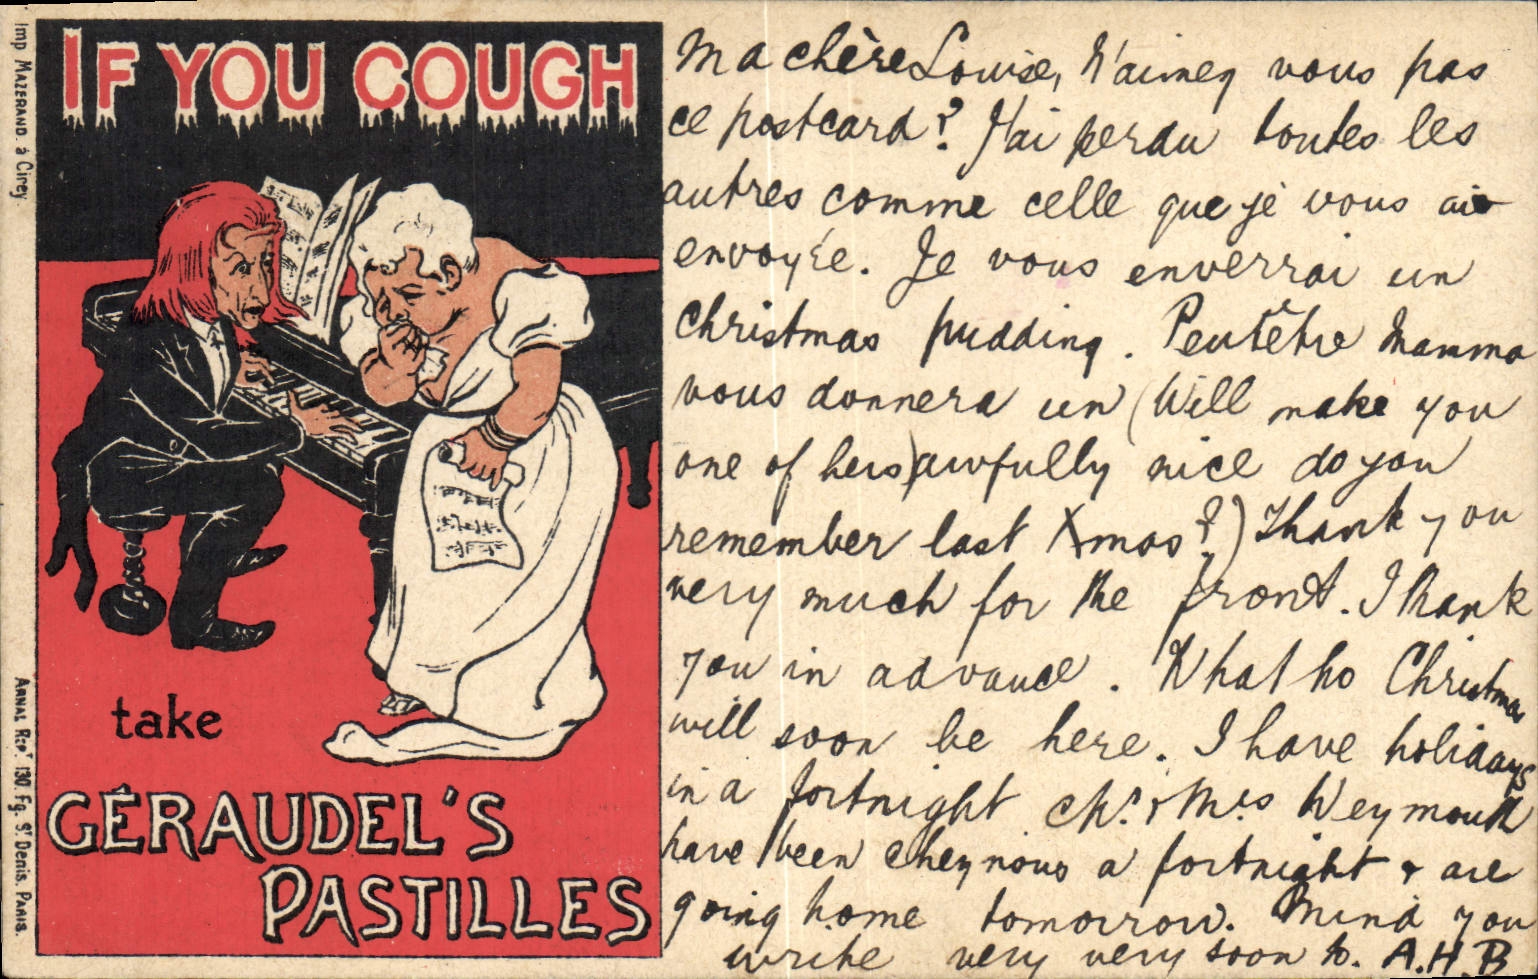 IF YOU COUGH
take
GÉRAUDEL'S
PASTILLES
Imp MAZERAND. à Cirey.
ARNAL REP.T 130. Fg. ST Denis. PARIS.
Ma chère Louise, N'aimez vous pas
ce postcard? J'ai perdu toutes les
autres comme celle que je vous ai
envoyée. Je vous enverrai un
Christmas pudding. Peutêtre Mamma
vous donnera un (Will make you
one of hers) awfully nice do you
remember last Xmas?) Thank you
very much for the front. I thank
you in advance. What ho Christmas
will soon be here. I have holidays
in a fortnight & Mrs Weymouth
have been chez nous a fortnight & are
going home tomorrow. Mind you
write very very soon to. A.H B